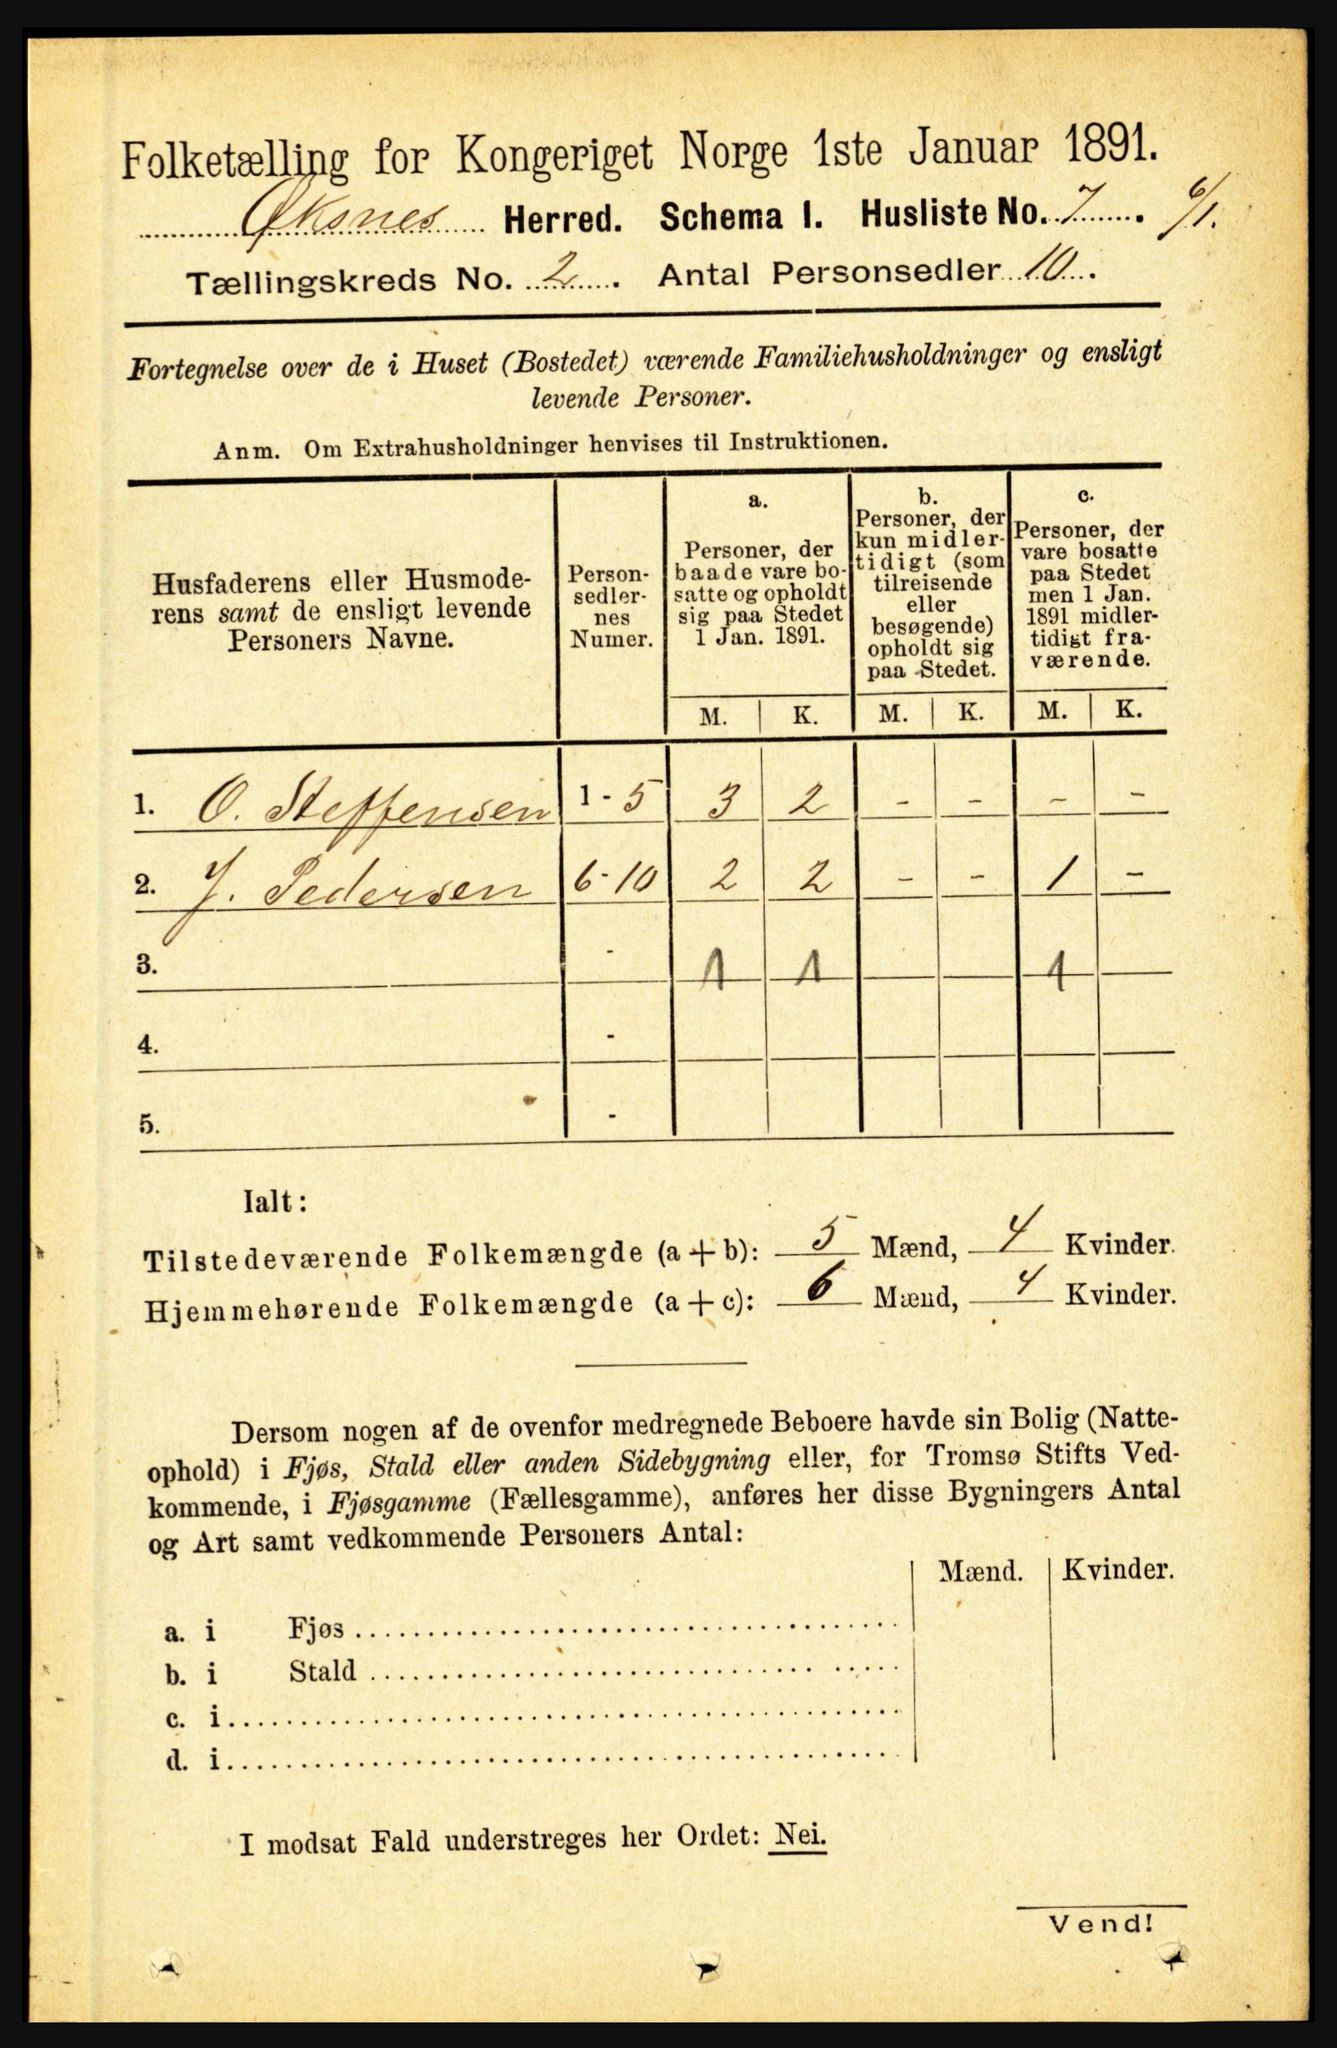 Folketælling for Kongeriget Norge 1ste Januar 1891.
Øksnes Herred. Schema 1. Husliste No. 7. 6/1.
Tællingskreds No. 2. Antal Personsedler 10.
Fortegnelse over de i Huset (Bostedet) værende Familiehusholdninger og ensligt
levende Personer.
Anm. Om Extrahusholdninger henvises til Instruktionen.
Husfaderens eller Husmode-
rens samt de ensligt levende
Personers Navne.
Person-
sedler-
nes
Numer.
a.
Personer, der
baade vare bo-
satte og opholdt
sig paa Stedet
1 Jan. 1891.
b.
Personer, der
kun midler-
tidigt (som
tilreisende
eller
besøgende)
opholdt sig
paa Stedet.
c.
Personer, der
vare bosatte
paa Stedet
men 1 Jan.
1891 midler-
tidigt fra-
værende.
M. K. M. K. M. K.
1. O. Steffensen 1 - 5 3 2 - - - -
2. J. Pedersen 6 - 10 2 2 - - 1 -
3. - 1 1 1
4. -
5. -
Ialt:
Tilstedeværende Folkemængde (a + b): 5 Mænd, 4 Kvinder.
Hjemmehørende Folkemængde (a + c): 6 Mænd, 4 Kvinder.
Dersom nogen af de ovenfor medregnede Beboere havde sin Bolig (Natte-
ophold) i Fjøs, Stald eller anden Sidebygning eller, for Tromsø Stifts Ved-
kommende, i Fjøsgamme (Fællesgamme), anføres her disse Bygningers Antal
og Art samt vedkommende Personers Antal:
Mænd. Kvinder.
a. i Fjøs
b. i Stald
c. i
d. i
I modsat Fald understreges her Ordet: Nei.
Vend!